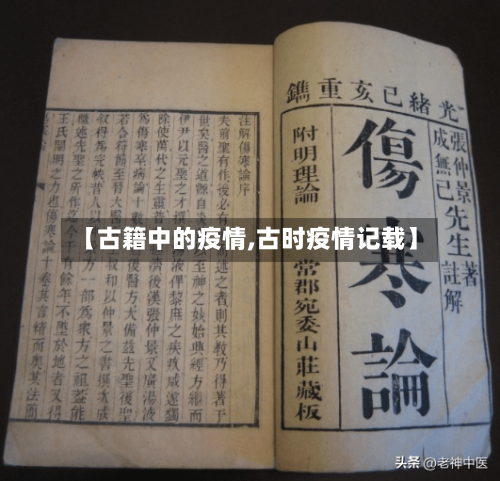 光緒己亥重鐫
張仲景先生著
成無己先生註解
傷寒論
附明理論
常郡宛委山莊藏板
注解傷寒論序
夫前聖有作後必有述之者則其教乃得著于
世矣醫之道源自神之妙始興經方繼而
伊尹以元聖之才撰俾黎庶之疾疚咸遂蠲
除使萬代之生靈後漢張仲景又廣湯液
為傷寒卒病論十數醫方大備茲先聖後聖
若合符節至晉太醫以仲景之書撰次成
敘得為完帙昔人以一部為眾方之祖蓋能
繼述先聖之所餘年不墜於地者又得
王氏闡明之力也傷寒論十卷其言精而奧其法
【古籍中的疫情,古时疫情记载】
头条 @老神中医